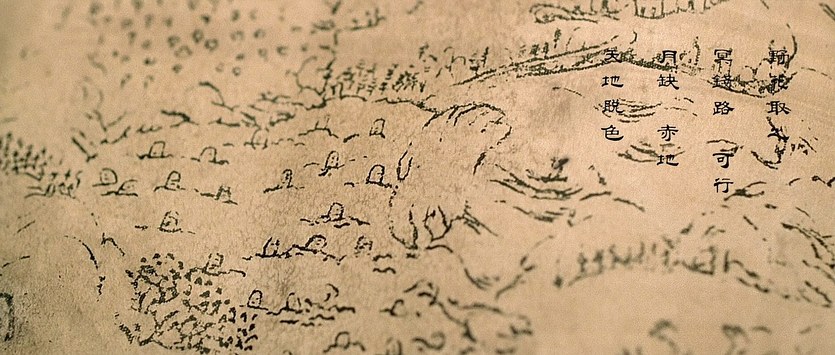 取
冥錢路 可行
月缺 赤地
天地脫色